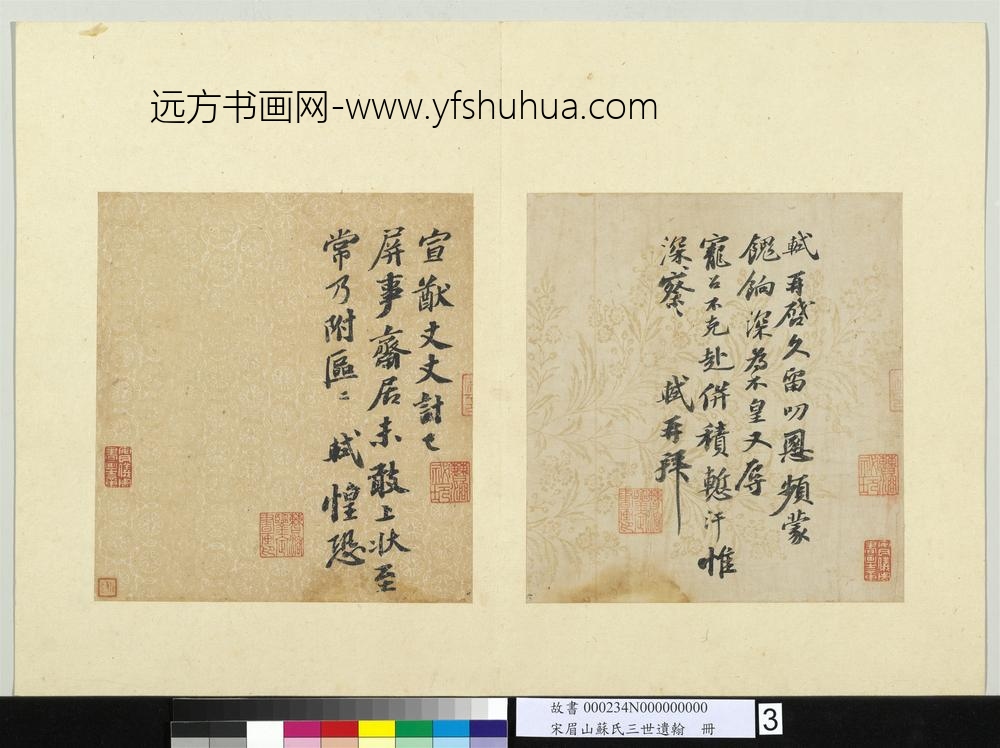 远方书画网-www.yfshuhua.com
軾再啓久留叨恩頻蒙
餽餉深為不皇又辱
寵召不克赴併積慙汗惟
深〻察〻 軾再拜
宣猷丈丈計已
屏事齋居未敢上狀至
常乃附區〻 軾惶恐
故書 000234N000000000
宋眉山蘇氏三世遺翰 冊
3